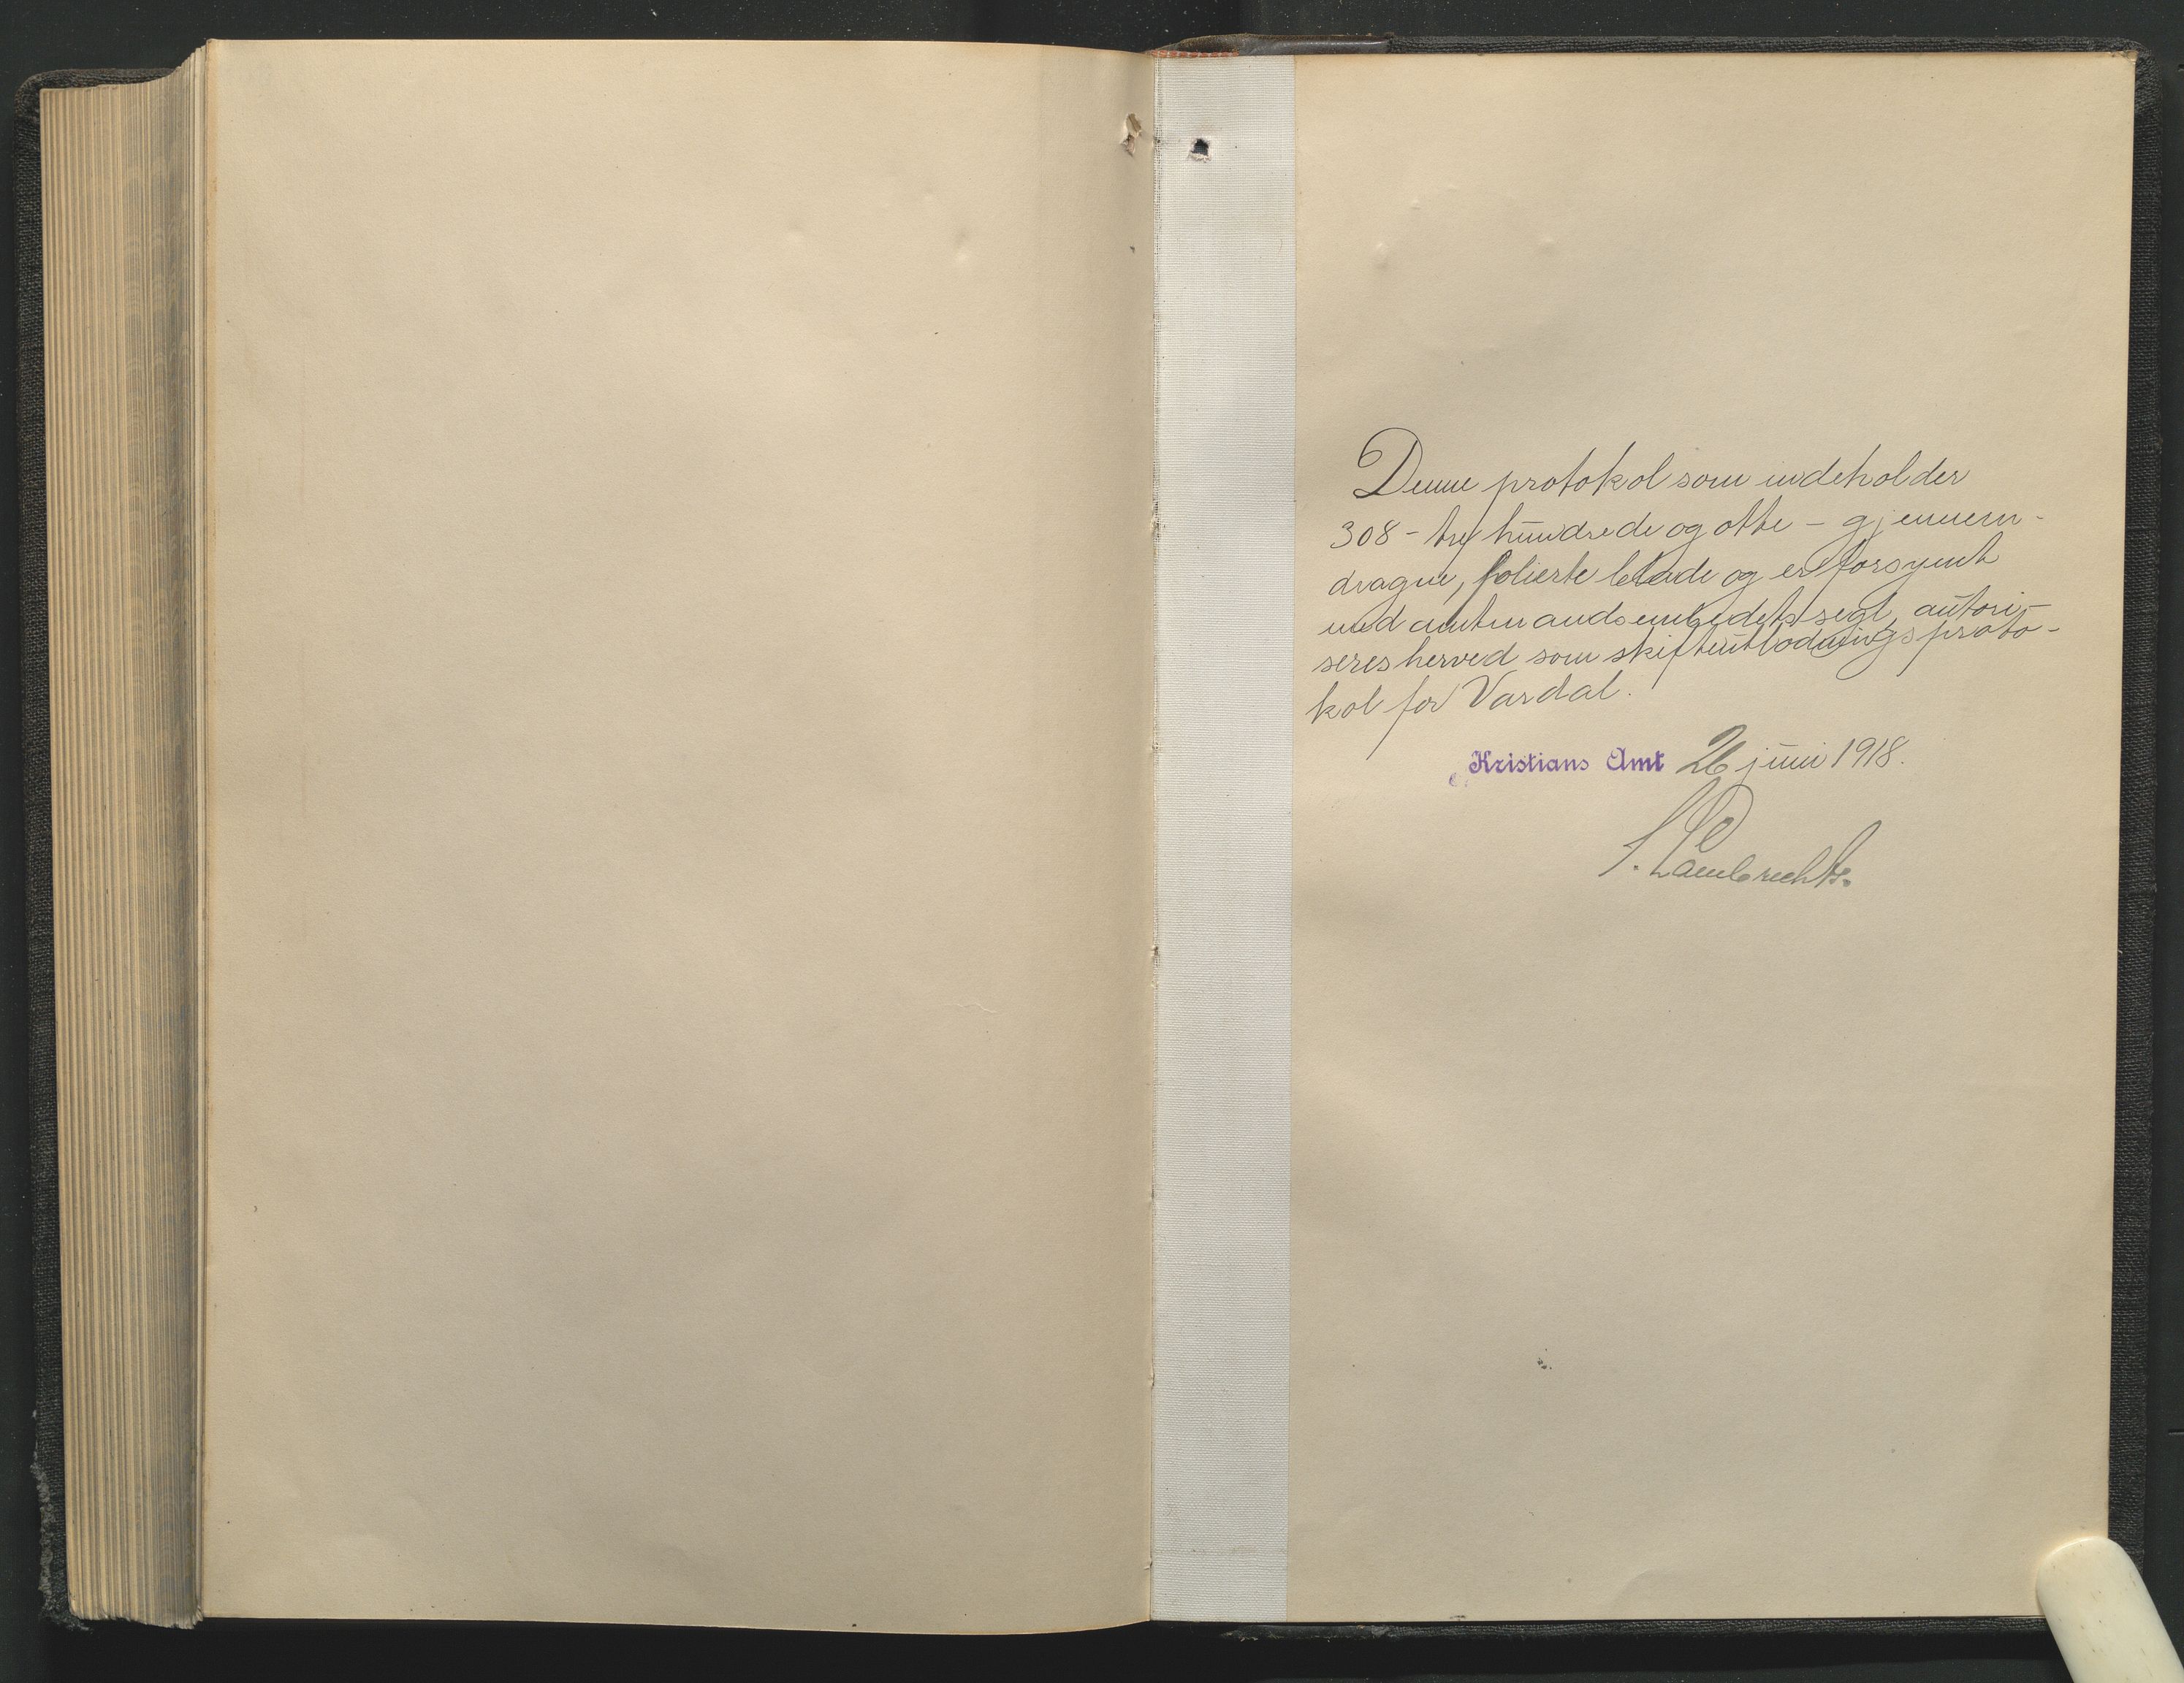 Denne protokol som indeholder
308 - tre hundrede og otte - gjennem-
dragne, folierte blade og er forsynt
med amtmandsembedets segl, autori-
seres herved som skifteutlodningsproto-
kol for Vardal.
Kristians Amt 26 juni 1918.
S. Lambrechts.